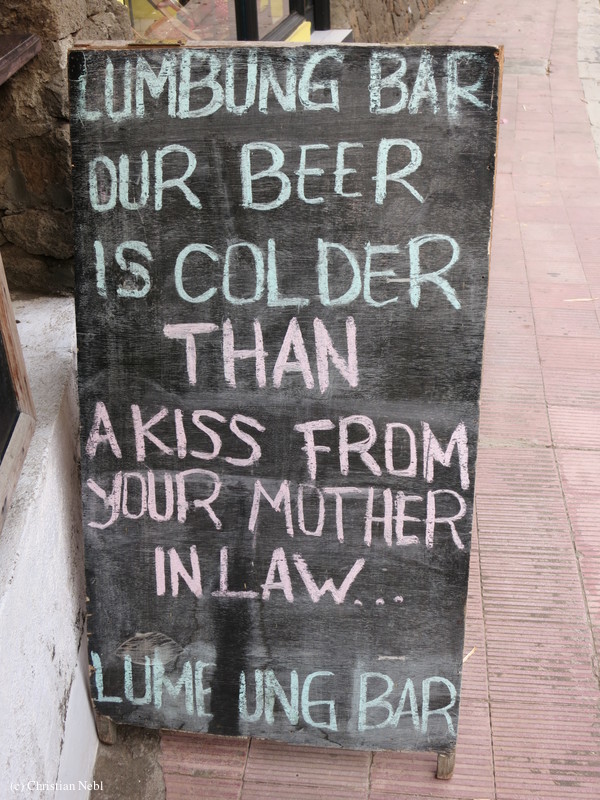 LUMBUNG BAR
OUR BEER
IS COLDER
THAN
A KISS FROM
YOUR MOTHER
IN LAW...
LUMB UNG BAR
(c) Christian Nebl